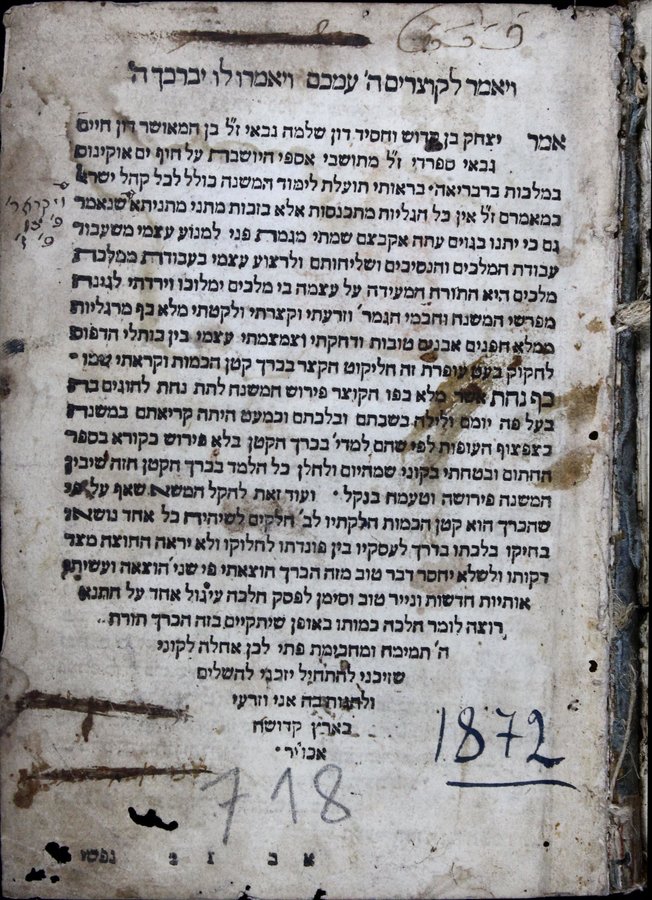 ויאמר לקוצרים ה' עמכם ויאמרו לו יברכך ה'
אמר יצחק בן קדוש וחסיד דון שלמה גבאי ז"ל בן המאושר דון חיים
גבאי ספרדי ז"ל מתושבי אספי היושבת על חוף ים אוקינוס
במלכות ברבריאה בראותי תועלת לימוד המשנה כולל לכל קהל ישראל
במאמרם ז"ל אין כל הגליות מתכנסות אלא בזכות מתני מתניתא שנאמר
גם כי יתנו בגוים עתה אקבצם שמתי מגמרת פני למנוע עצמי משעבוד
עבודת המלכים והנסיבים ושליחותם ולרצוע עצמי בעבודת ממלכת
מלכים היא התורה המעידה על עצמה בי מלכים ימלוכו וירדתי לגינת
מפרשי המשנה וחכמי הגמר' וזרעתי וקצרתי ולקטתי מלא כף מרגליות
ממלא חפנים אבנים טובות ודחקתי וצמצמתי עצמי בין כותלי הדפוס
לחקוק בעט עופרת זה הליקוט הקצר בכרך קטן הכמות וקראתי שמו
כף נחת אשר מלא כפו הקוצר פירוש המשנה לתת נחת להוגים בה
בעל פה יומם ולילה בשבתם ובלכתם וכמעט היתה קריאתם במשנה
כצפצוף העופות לפי שהם למדי' בכרך הקטן בלא פירוש כקורא בספר
החתום ובטחתי בקוני שמהיום ולהלן כל הלמד בכרך הקטן הזה שיבין
המשנה פירושה וטעמה בנקל ועוד זאת להקל המשא שאף על פי
שהכרך הוא קטן הכמות חלקתיו לב' חלקים לשיהיה כל אחד נושאו
בחיקו בלכתו בדרך לעסקיו בין פונדתו לחלוקו ולא יראה החוצה מצד
דקותו ולשלא יחסר דבר טוב מזה הכרך הוצאתי פי שני הוצאה ועשיתי
אותיות חדשות ונייר טוב וסימן לפסק הלכה עיגול אחד על התנא
רוצה לומר הלכה כמותו באופן שיתקיים בזה הכרך תורת
ה' תמימה ומחכימת פתי לכן אחלה לקוני
שזיכני להתחיל יזכני להשלים
ולהגות בה אני וזרעי
בארץ קדושה
אכי"ר
1872
718
א ב ז מ נפשי